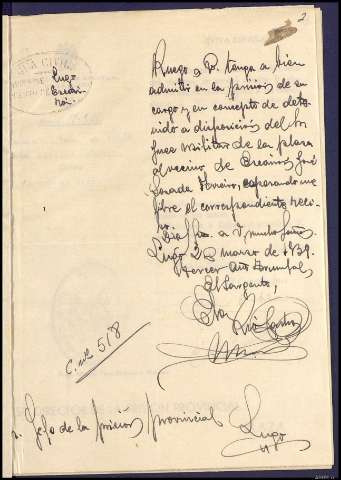 2
Lugo
Ruego a V. tenga a bien
admitir en la prisión de su
cargo y en concepto de dete
nido a disposición del Sr
Juez Militar de la plaza
al vecino de José
Losada esperando me
libre el correspondiente reci
bo.
Dios gue. a V. muchos años
Lugo 2 marzo de 1939.
Tercer Año Triunfal,
El Sargento,
C. nº 518
Sr. Jefe de la prisión provincial Lugo